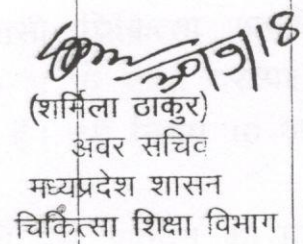 (शर्मिला ठाकुर)
अवर सचिव
मध्यप्रदेश शासन
चिकित्सा शिक्षा विभाग